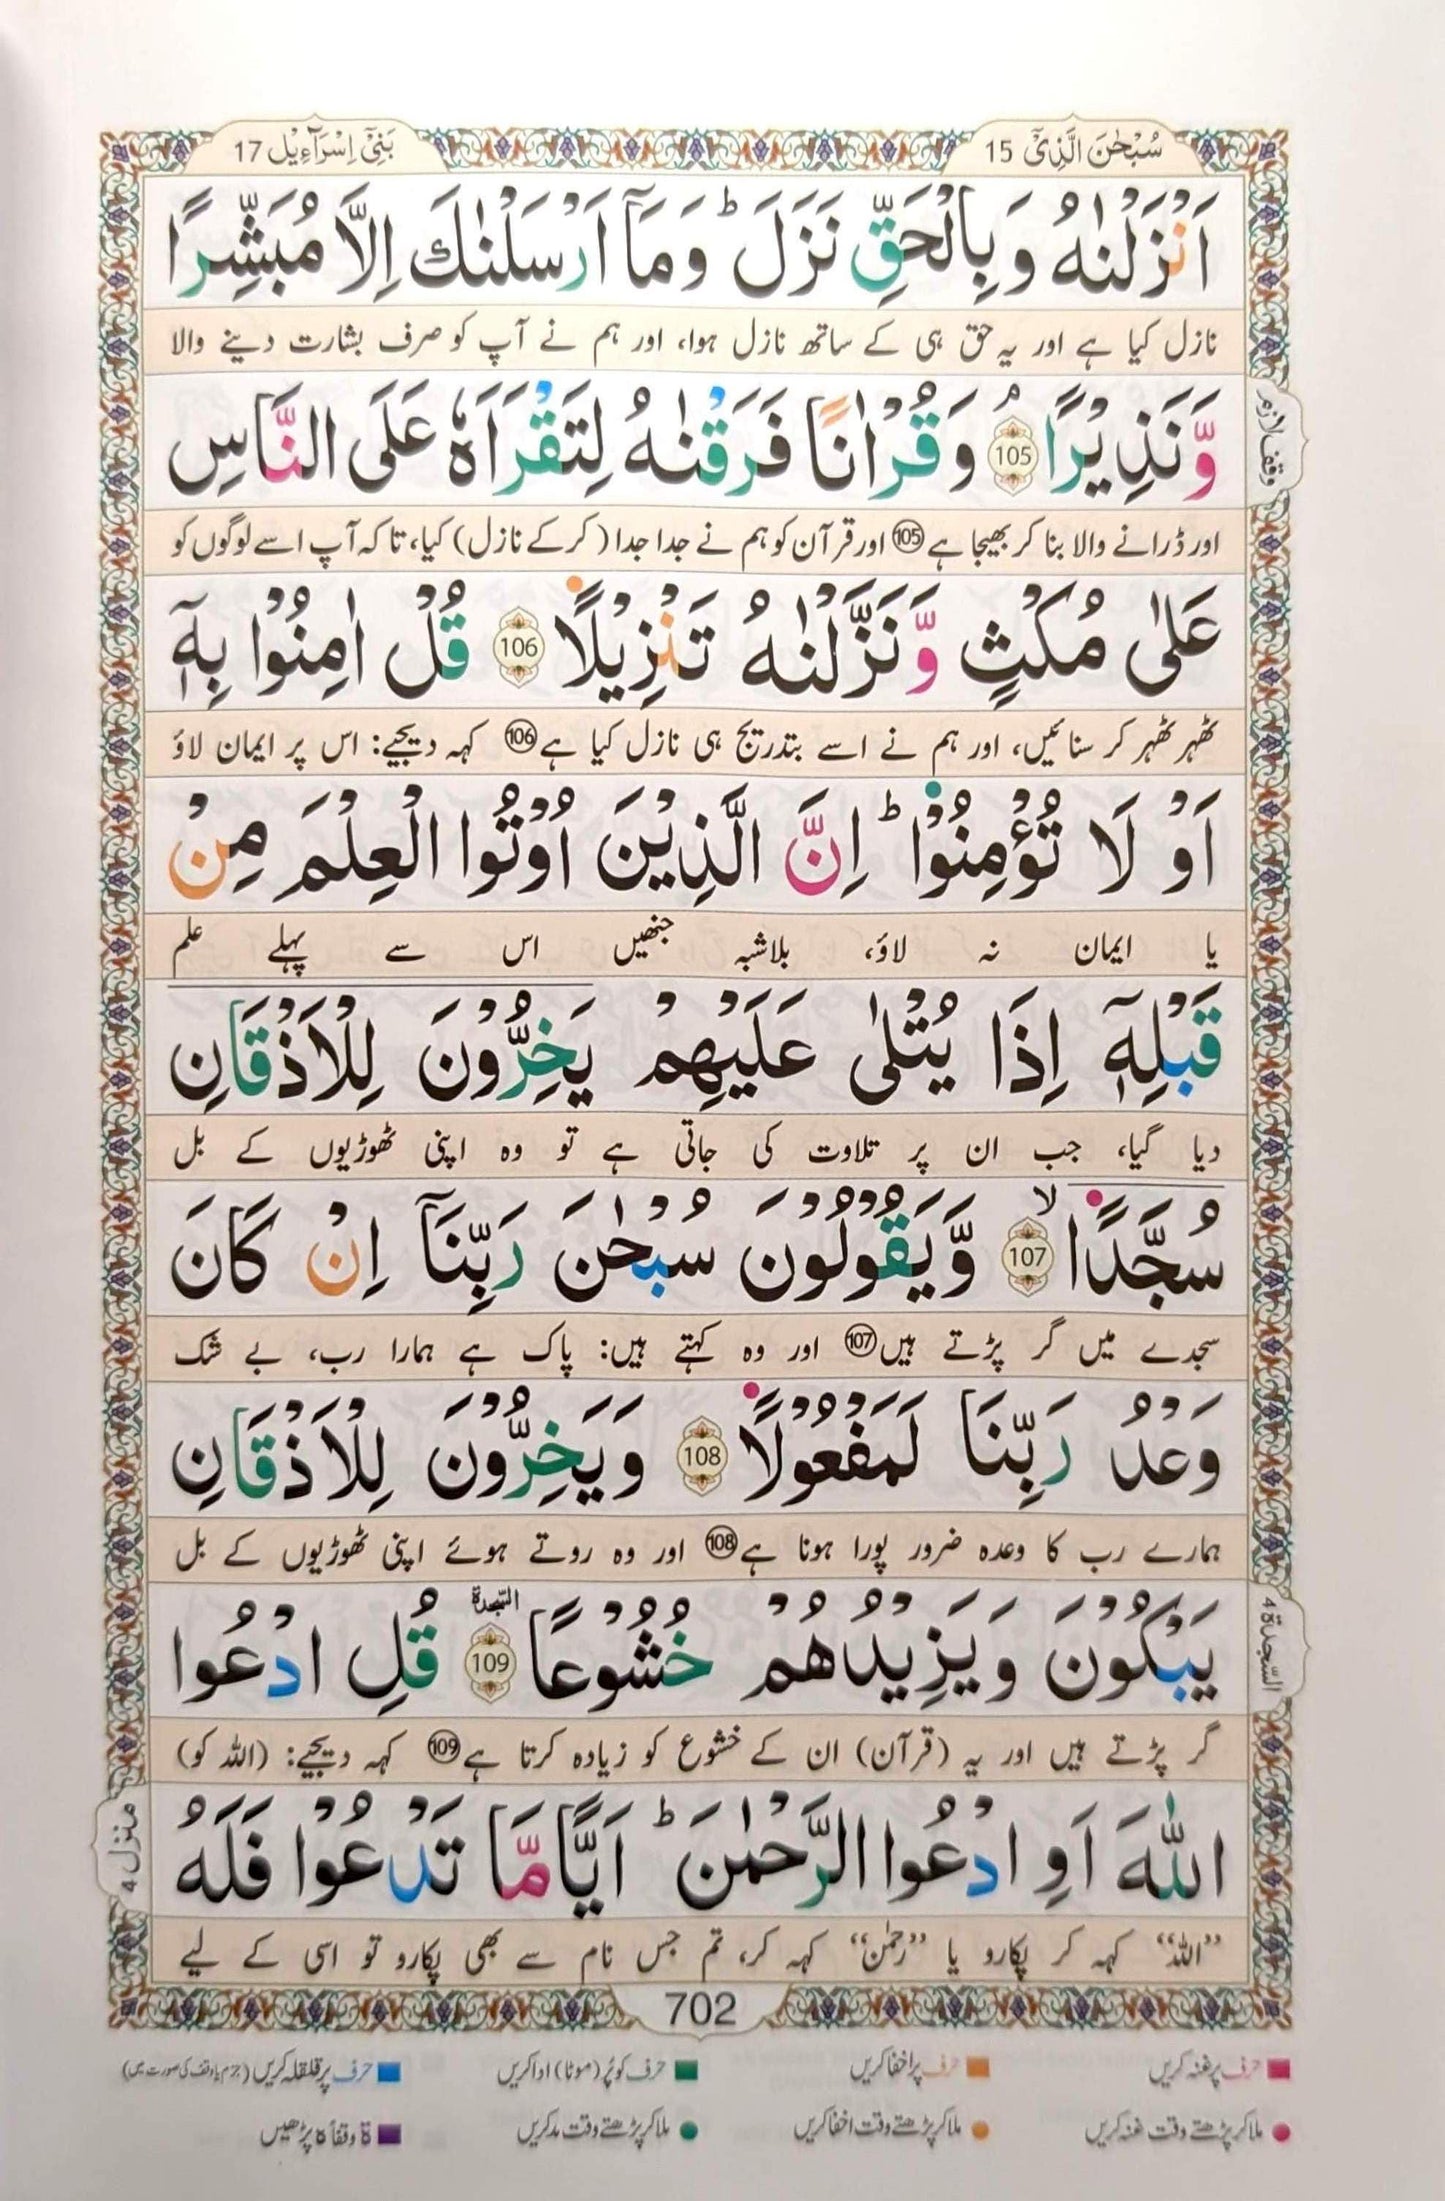 سُبْحٰنَ الَّذِیْۤ 15
بَنِیْۤ اِسْرَآءِیْل 17
اَنْزَلْنٰهُ وَبِالْحَقِّ نَزَلَ ؕ وَمَاۤ اَرْسَلْنٰكَ اِلَّا مُبَشِّرًا
نازل کیا ہے اور یہ حق ہی کے ساتھ نازل ہوا، اور ہم نے آپ کو صرف بشارت دینے والا
وَّنَذِیْرًا ۘ 105 وَقُرْاٰنًا فَرَقْنٰهُ لِتَقْرَاَهٗ عَلَی النَّاسِ
وقف لازم
اور ڈرانے والا بنا کر بھیجا ہے 105 اور قرآن کو ہم نے جدا جدا (کر کے نازل) کیا، تاکہ آپ اسے لوگوں کو
عَلٰی مُكْثٍ وَّنَزَّلْنٰهُ تَنْزِیْلًا 106 قُلْ اٰمِنُوْا بِهٖۤ
ٹھہر ٹھہر کر سنائیں، اور ہم نے اسے بتدریج ہی نازل کیا ہے 106 کہہ دیجیے: اس پر ایمان لاؤ
اَوْ لَا تُؤْمِنُوْا ؕ اِنَّ الَّذِیْنَ اُوْتُوا الْعِلْمَ مِنْ
یا ایمان نہ لاؤ، بلاشبہ جنھیں اس سے پہلے علم
قَبْلِهٖۤ اِذَا یُتْلٰی عَلَیْهِمْ یَخِرُّوْنَ لِلْاَذْقَانِ
دیا گیا، جب ان پر تلاوت کی جاتی ہے تو وہ اپنی ٹھوڑیوں کے بل
سُجَّدًا ۙ 107 وَّیَقُوْلُوْنَ سُبْحٰنَ رَبِّنَاۤ اِنْ كَانَ
سجدے میں گر پڑتے ہیں 107 اور وہ کہتے ہیں: پاک ہے ہمارا رب، بے شک
وَعْدُ رَبِّنَا لَمَفْعُوْلًا 108 وَیَخِرُّوْنَ لِلْاَذْقَانِ
ہمارے رب کا وعدہ ضرور پورا ہونا ہے 108 اور وہ روتے ہوئے اپنی ٹھوڑیوں کے بل
یَبْكُوْنَ وَیَزِیْدُهُمْ خُشُوْعًا السّجدة 109 قُلِ ادْعُوا
السّجدة ٤
گر پڑتے ہیں اور یہ (قرآن) ان کے خشوع کو زیادہ کرتا ہے 109 کہہ دیجیے: (اللہ کو)
اللّٰهَ اَوِ ادْعُوا الرَّحْمٰنَ ؕ اَیًّا مَّا تَدْعُوْا فَلَهُ
منزل ٤
”اللہ“ کہہ کر پکارو یا ”رحمٰن“ کہہ کر، تم جس نام سے بھی پکارو تو اسی کے لیے
702
حرف پر غنہ کریں
حرف پر اخفا کریں
حرف کو پُر (موٹا) ادا کریں
حرف پر قلقلہ کریں (جزم یا وقف کی صورت میں)
ملا کر پڑھتے وقت غنہ کریں
ملا کر پڑھتے وقت اخفا کریں
ملا کر پڑھتے وقت مد کریں
ة وقفاً ہ پڑھیں